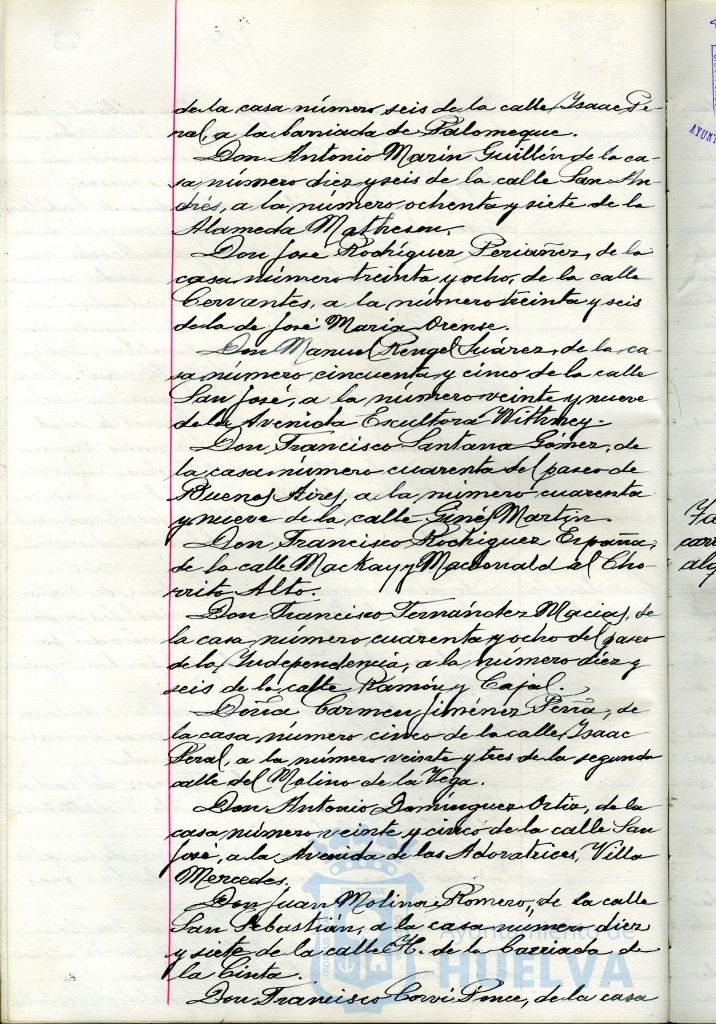 de la casa número seis de la calle Isaac Pe-
ral, a la barriada de Palomeque.
Don Antonio Marín Guillén de la ca-
sa número diez y seis de la calle San An-
drés, a la número ochenta y siete de la
Alameda Mathesen.
Don José Rodríguez Periañez, de la
casa número treinta y ocho, de la calle
Cervantes, a la número treinta y seis
de la de José María Orense.
Don Manuel Rengel Suárez, de la ca-
sa número cincuenta y cinco de la calle
San José, a la número veinte y nueve
de la Avenida Escultora Withney.
Don Francisco Santana Gómez, de
la casa número cuarenta del paseo de
Buenos Aires, a la número cuarenta
y nueve de la calle Ginés Martín.
Don Francisco Rodríguez España,
de la calle Mackay y Macdonald al Cho-
rrito Alto.
Don Francisco Fernández Macías, de
la casa número cuarenta y ocho del paseo
de la Independencia, a la número diez y
seis de la calle Ramón y Cajal.
Doña Carmen Jiménez Peña, de
la casa número cinco de la calle Isaac
Peral, a la número veinte y tres de la segunda
calle del Molino de la Vega.
Don Antonio Domínguez Ortiz, de la
casa número veinte y cinco de la calle San
José, a la Avenida de las Adoratrices, Villa
Mercedes.
Don Juan Molina Romero, de la calle
San Sebastián, a la casa número diez
y siete de la calle H. de la Barriada de
la Cinta.
Don Francisco Corvi Ponce, de la casa
Ayuntamiento de
HUELVA